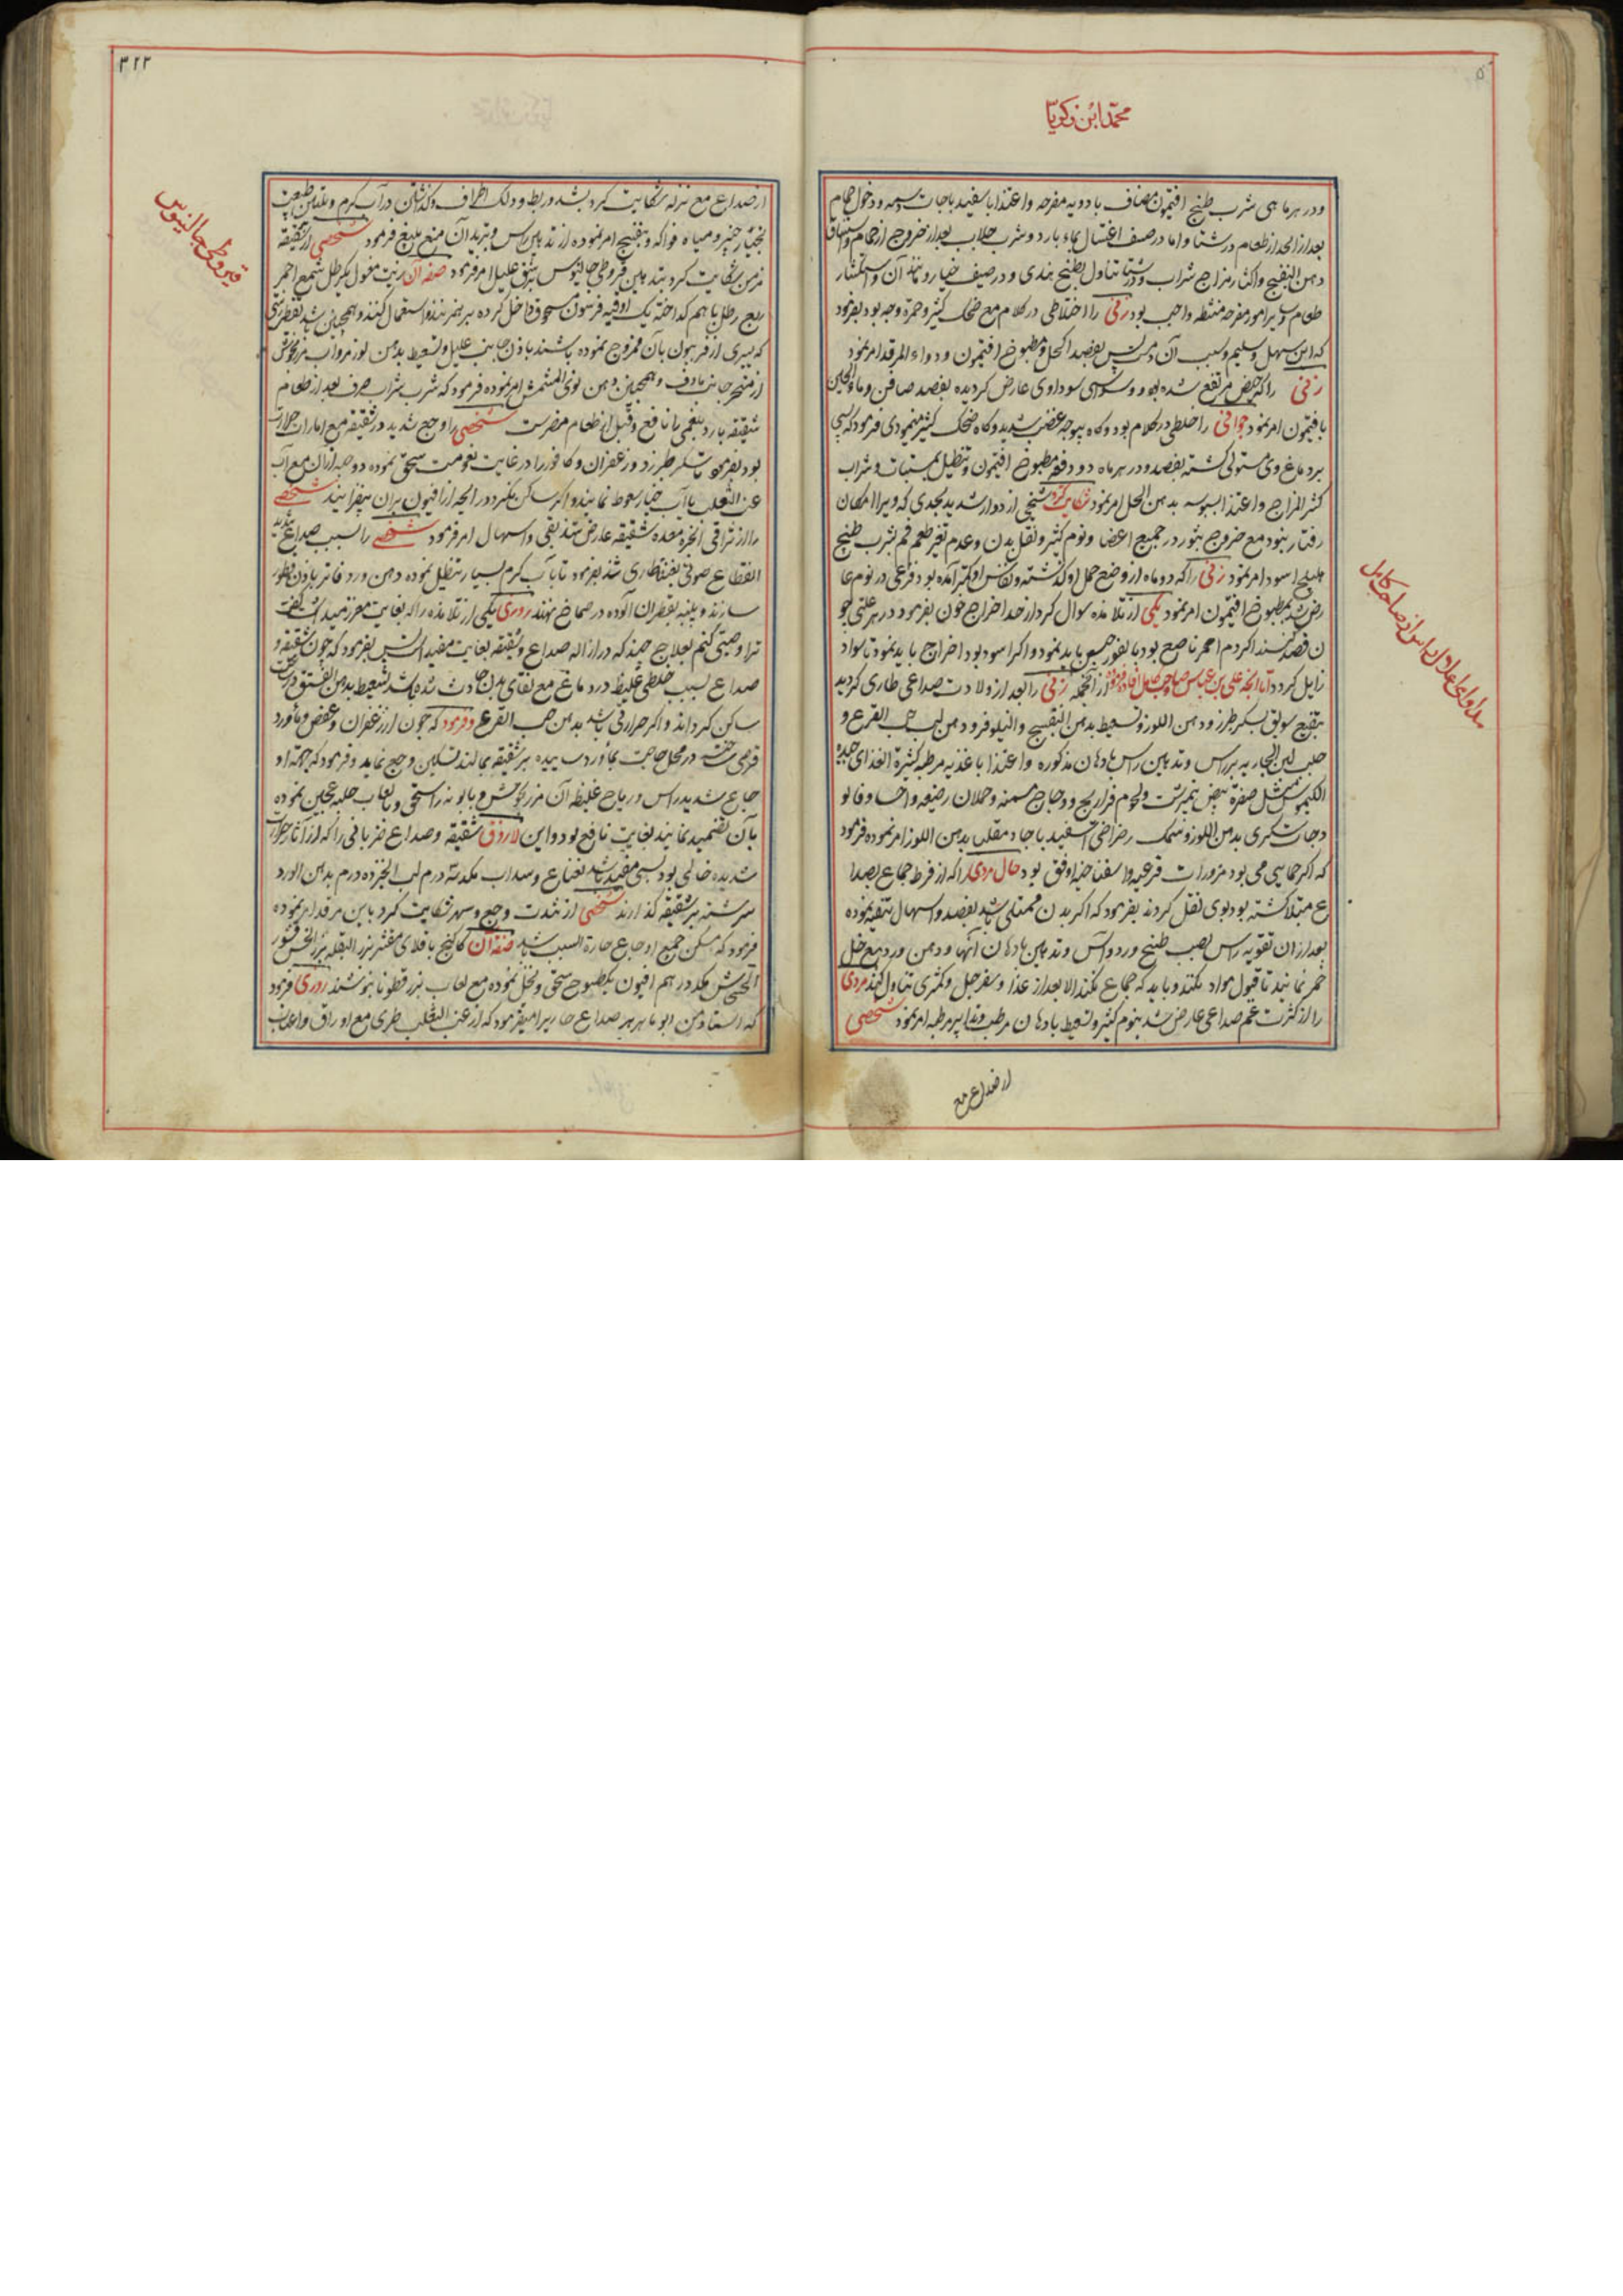 محمد ابن زکریا
ودر هر ماهی شرب طبیخ افتیمون مضاف بادویه مفرحه واغتذا باسفیدباجات ودخول حمام
بعد از انحدار طعام در شتا واما در صیف اغتسال بماء بارد وشرب جلاب بعد از خروج از حمام
دهن البنفسج واکثار مزاج شراب ودر شتا تناول بطیخ هندی ودر صیف خیار
طعام وسایر امور مفرحه منشطه واجب بود زنی را اختلاطی در کلام مع ضحک کثیر وحمرة وجه بود بفرمود
که این سهل وسلیم وسبب آن دم است پس بفصد اکحل ومطبوخ افتیمون ودواء المر قد امر نمود
زنی را که حیض مرتفع شده بود ووسواس سوداوی عارض گردیده بفصد صافن وماء الجبن
بافتیمون امر نمود جوانی را خلطی در کلام بود وگاه بیوجه غضب شدید وگاه ضحک کثیر مینمودی فرمود که یبس
برد ماغ وی مستولی گشته بفصد ودر هر ماه دو دفعه مطبوخ افتیمون وتنطیل بمسبتات وشراب
کثیر المزاج واغتذا بسبوسه بدهن الحل امر نمود شکایت کرد شیخی از دوار شدید بحدی که ویرا امکان
رفتار نبود مع خروج بثور در جمیع اعضا ونوم کثیر وثقل بدن وعدم تغیر طعم فم بشرب طبیخ
هلیلج اسود امر نمود زنی را که دو ماه از وضع حمل او گذشته ونفس او بکبر آمده بود فزعی در نوم عا
رض شد بمطبوخ افتیمون امر نمود یکی از تلامذه سوال کرد از حد اخراج خون بفرمود در هر علتی چو
ن فصد کنند اگر دم احمر ناصع بود بالفور حبس باید نمود واگر اسود بود اخراج باید نمود تا سواد
زایل گردد اما آنچه علی بن عباس صاحب کامل افاده فرموده از آنجمله زنی را بعد از ولادت صداعی طاری گردید
بنقیع سویق بسکر طبرزد ودهن اللوز وتسعیط بدهن البنفسج والنیلوفر ودهن لب حب القرع و
حلب لبن الجاریه بر راس وتدهین راس بادهان مذکوره واغتذا باغذیه مرطبه کثیرة الغذای جیده
الکیموس مثل صفرة بیض نیمبرشت ولحوم فراریج ودجاج مسمنه وحملان رضیعه واحسا وفالو
دجات سکری بدهن اللوز وسمک رضراضی اسفیدباجا ومقلی بدهن اللوز امر نموده فرمود
که اگر حمایی می بود مزورات قرعیه واسفناخیه اوفق بود حال مردی را که از فرط جماع بصدا
ع مبتلا گشته بود بوی نقل کردند بفرمود که اگر بدن ممتلی باشد بفصد واسهال تنقیه نموده
بعد از آن تقویه راس بصب طبیخ ورد وآس وتدهین بادهان آنها ودهن ورد مع خل
خمر نمایند تا قبول مواد نکند وباید که جماع نکند الا بعد از غذا وسفرجل وکمثری تناول کند مردی
را از کثرت غم صداعی عارض شد بنوم کثیر وتسعیط بادهان مرطب وتدابیر مرطبه امر نمود شخصی
از صداع مع
مداوای اعلال راس از صاحب کامل
۳۲۲
از صداع مع نزله شکایت کرد بشد وربط ودلک اطراف وگذاشتن در آب گرم وتلیین طبیعت
بخیار چنبر ومیاه فواکه وبنفسج امر نموده از تدهین راس وتبرید آن منع بلیغ فرمود شخصی از شقیقه
مزمن شکایت کرد بتدهین قیروطی جالینوس بشق علیل امر فرمود صفه آن زیت مغسول یکرطل شمع احمر
ربع رطل باهم گداخته یک اوقیه فرفیون مسحوق داخل کرده بر هم زنند واستعمال کنند وهمچنین
که یسیری از فرفیون بآن ممزوج نموده باشند باذن جانب علیل وتسعیط بدهن لوز مر وآب مرزنجوش
از منخر جانب ماوف وهمچنین دهن نوی المشمش امر نموده فرمود که شرب شراب صرف بعد از طعام
شقیقه بارد بلغمی را نافع وقبل از طعام مضرست شخصی را وجع شدید در شقیقه مع امارات حرارت
بود بفرمود تا سکر طبرزد وزعفران وکافور را در غایت نعومت سحق نموده دو حبه از آن مع آب
عنب الثعلب یا آب خیار سعوط نمایند واگر ساکن نگردد رایحه از افیون بر آن بیفزایند شخصی
را از تراقی ابخره معده شقیقه عارض شد بقی واسهال امر فرمود شخصی را بسبب صداع شدید
انقطاع صوتی بغتة طاری شد بفرمود تا بآب گرم بسیار تنطیل نموده دهن ورد فاتر باذن قطور
سازند وپنبه بقطران آلوده در صماخ نهند روزی یکی از تلامذه را که بغایت معزز میداشت گفت
ترا وصیتی کنم بعلاج چند که در ازاله صداع وشقیقه بغایت مفید است پس بفرمود که چون شقیقه و
صداع بسبب خلطی غلیظ در دماغ مع نقای بدن حادث شده باشد تسعیط بدهن الفستق
ساکن گرداند واگر حرارتی باشد بدهن حب القرع وفرمود که چون از زعفران وعفص وماورد
قرصی ساخته در محل حاجت بماورد ساییده بر شقیقه بمالند تسکین وجع نماید وفرمود که جهة او
جاع شدید راس وریاح غلیظه آن مرزنجوش وبابونه را سحق وبلعاب حلبه عجین نموده
بآن تضمید نمایند بغایت نافع بود واین لازوق شقیقه وصداع ضربانی را که از آثار حرارت
شدیده خالی بود بسی مفید باشد نعناع وسداب هریک سه درم لب الخبز ده درم بدهن الورد
سرشته بر شقیقه گذارند شخصی از شدت وجع وسهر شکایت کرد باین مرقد امر نموده
فرمود که مسکن جمیع اوجاع حارة السبب باشد صفة آن کاکنج باقلای مقشر بزر البقله بزر الخس قشور
الخشخاش هریک درهم افیون یکطسوج سحق ونخل نموده مع لعاب بزر قطونا بنوشند روزی فرمود
که استاد من ابو ماهر هر صداع حار را میفرمود که از عنب الثعلب طری مع اوراق واغصان
قیروطی جالینوس